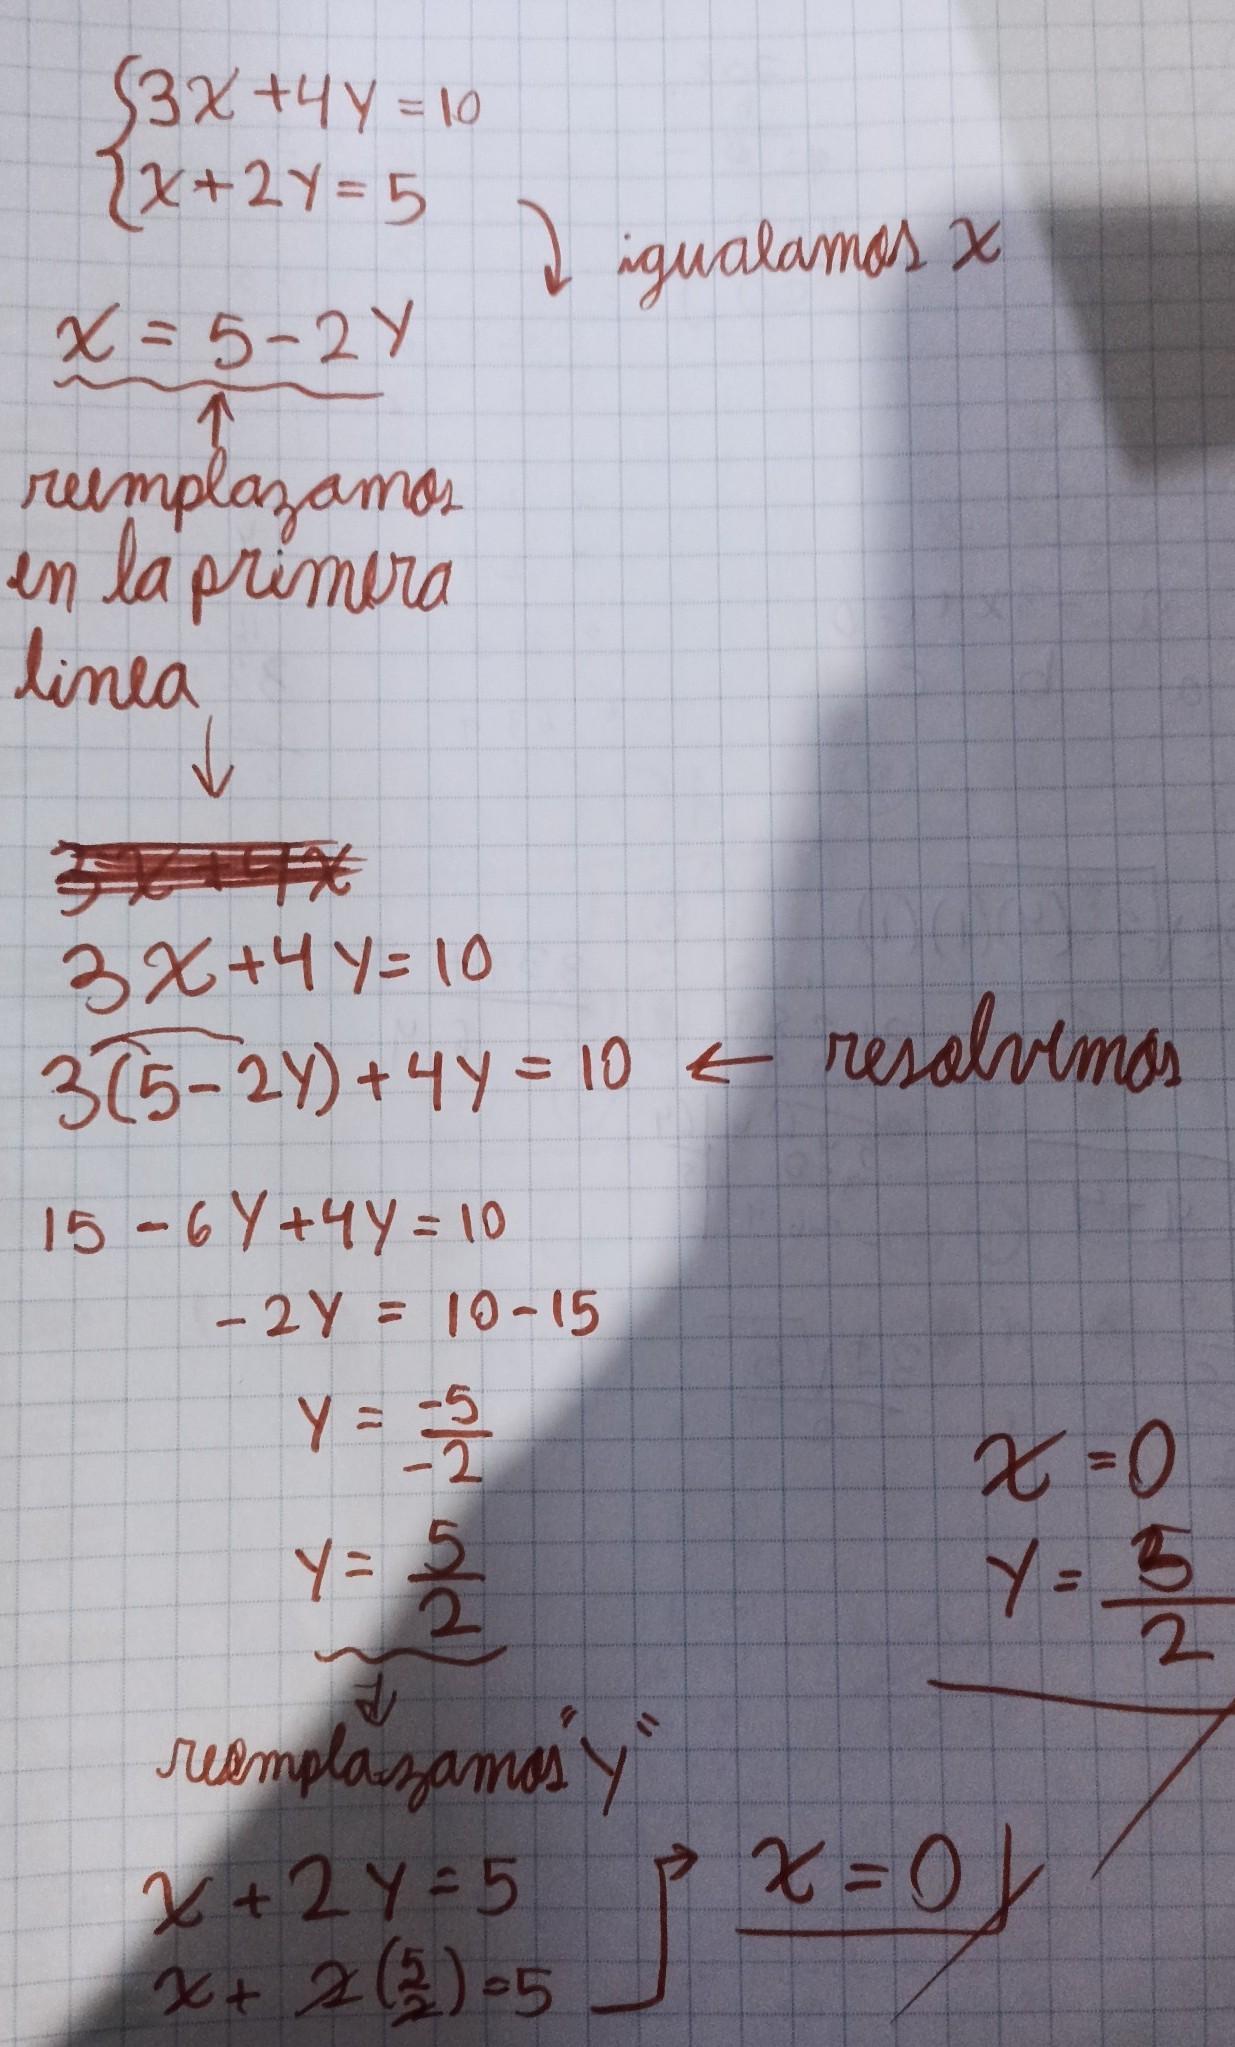 3x+4y=10
x+2y=5
igualamos x
x = 5-2y
reemplazamos
en la primera
linea
3x+4x
3x+4y=10
3(5-2y)+4y=10 ← resolvemos
15-6y+4y=10
-2y = 10-15
y = -5/-2
y = 5/2
reemplazamos "y"
x+2y=5
x+2(5/2)=5
x=0
x=0
y=5/2